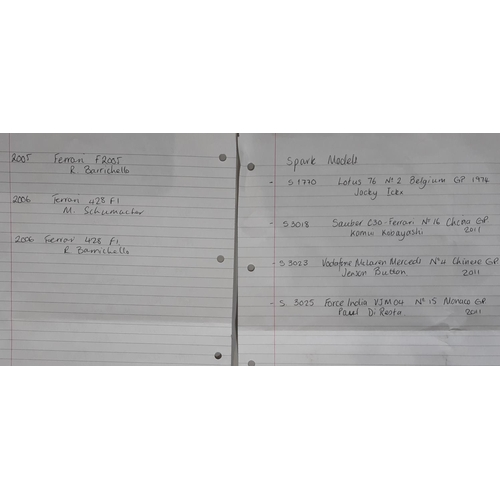 2005 Ferrari F2005
R. Barrichello
2006 Ferrari 428 F1
M. Schumacher
2006 Ferrari 428 F1
R. Barrichello
Spark Models
- S 1770 Lotus 76 Nº 2 Belgium GP 1974
Jacky Ickx
- S 3018 Sauber C30-Ferrari Nº 16 China GP
Kamui Kobayashi 2011
- S 3023 Vodafone McLaren Mercedes Nº 4 Chinese GP
Jenson Button 2011
- S. 3025 Force India VJM04 Nº 15 Monaco GP
Paul Di Resta 2011